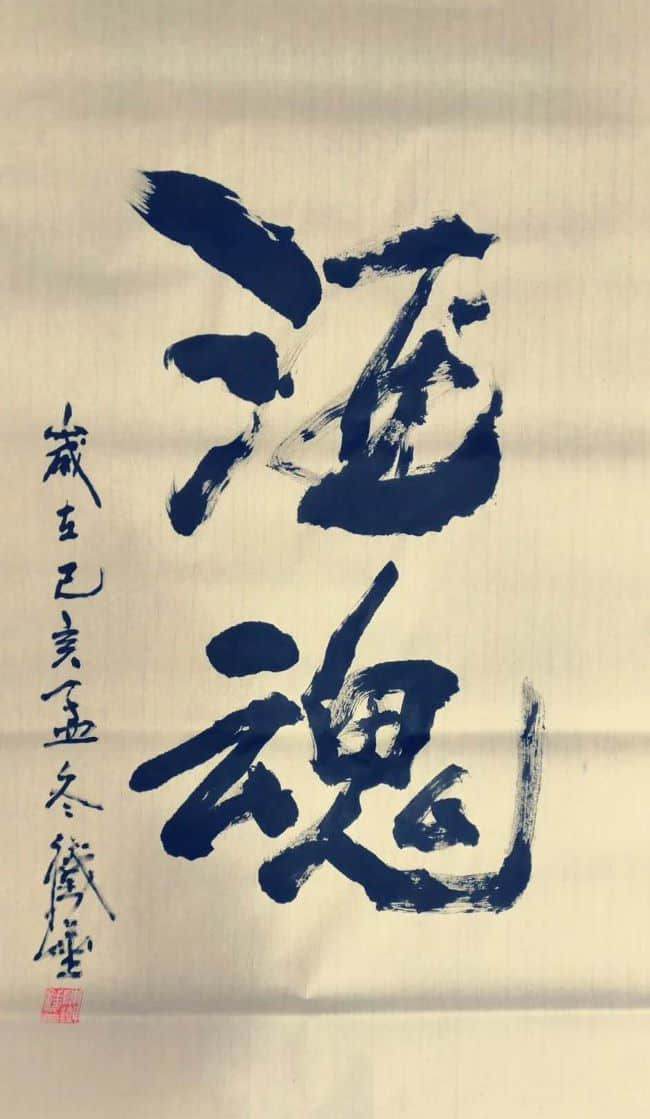 酒魂
歲在己亥孟冬